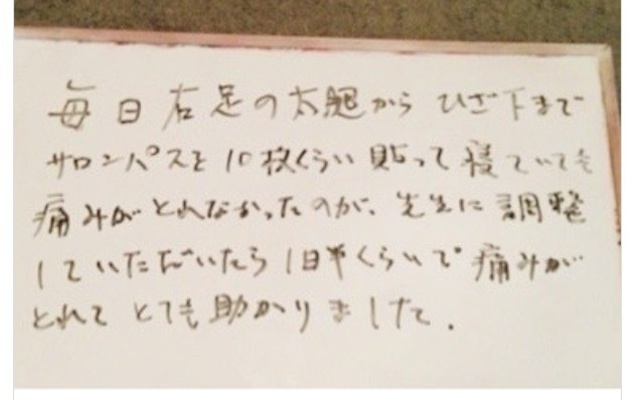 毎日右足の太腿から ひざ下まで
サロンパスを10枚くらい貼って寝ていても
痛みがとれなかったのが、先生に調整
していただいたら1日半くらいで痛みが
とれて とても助かりました.